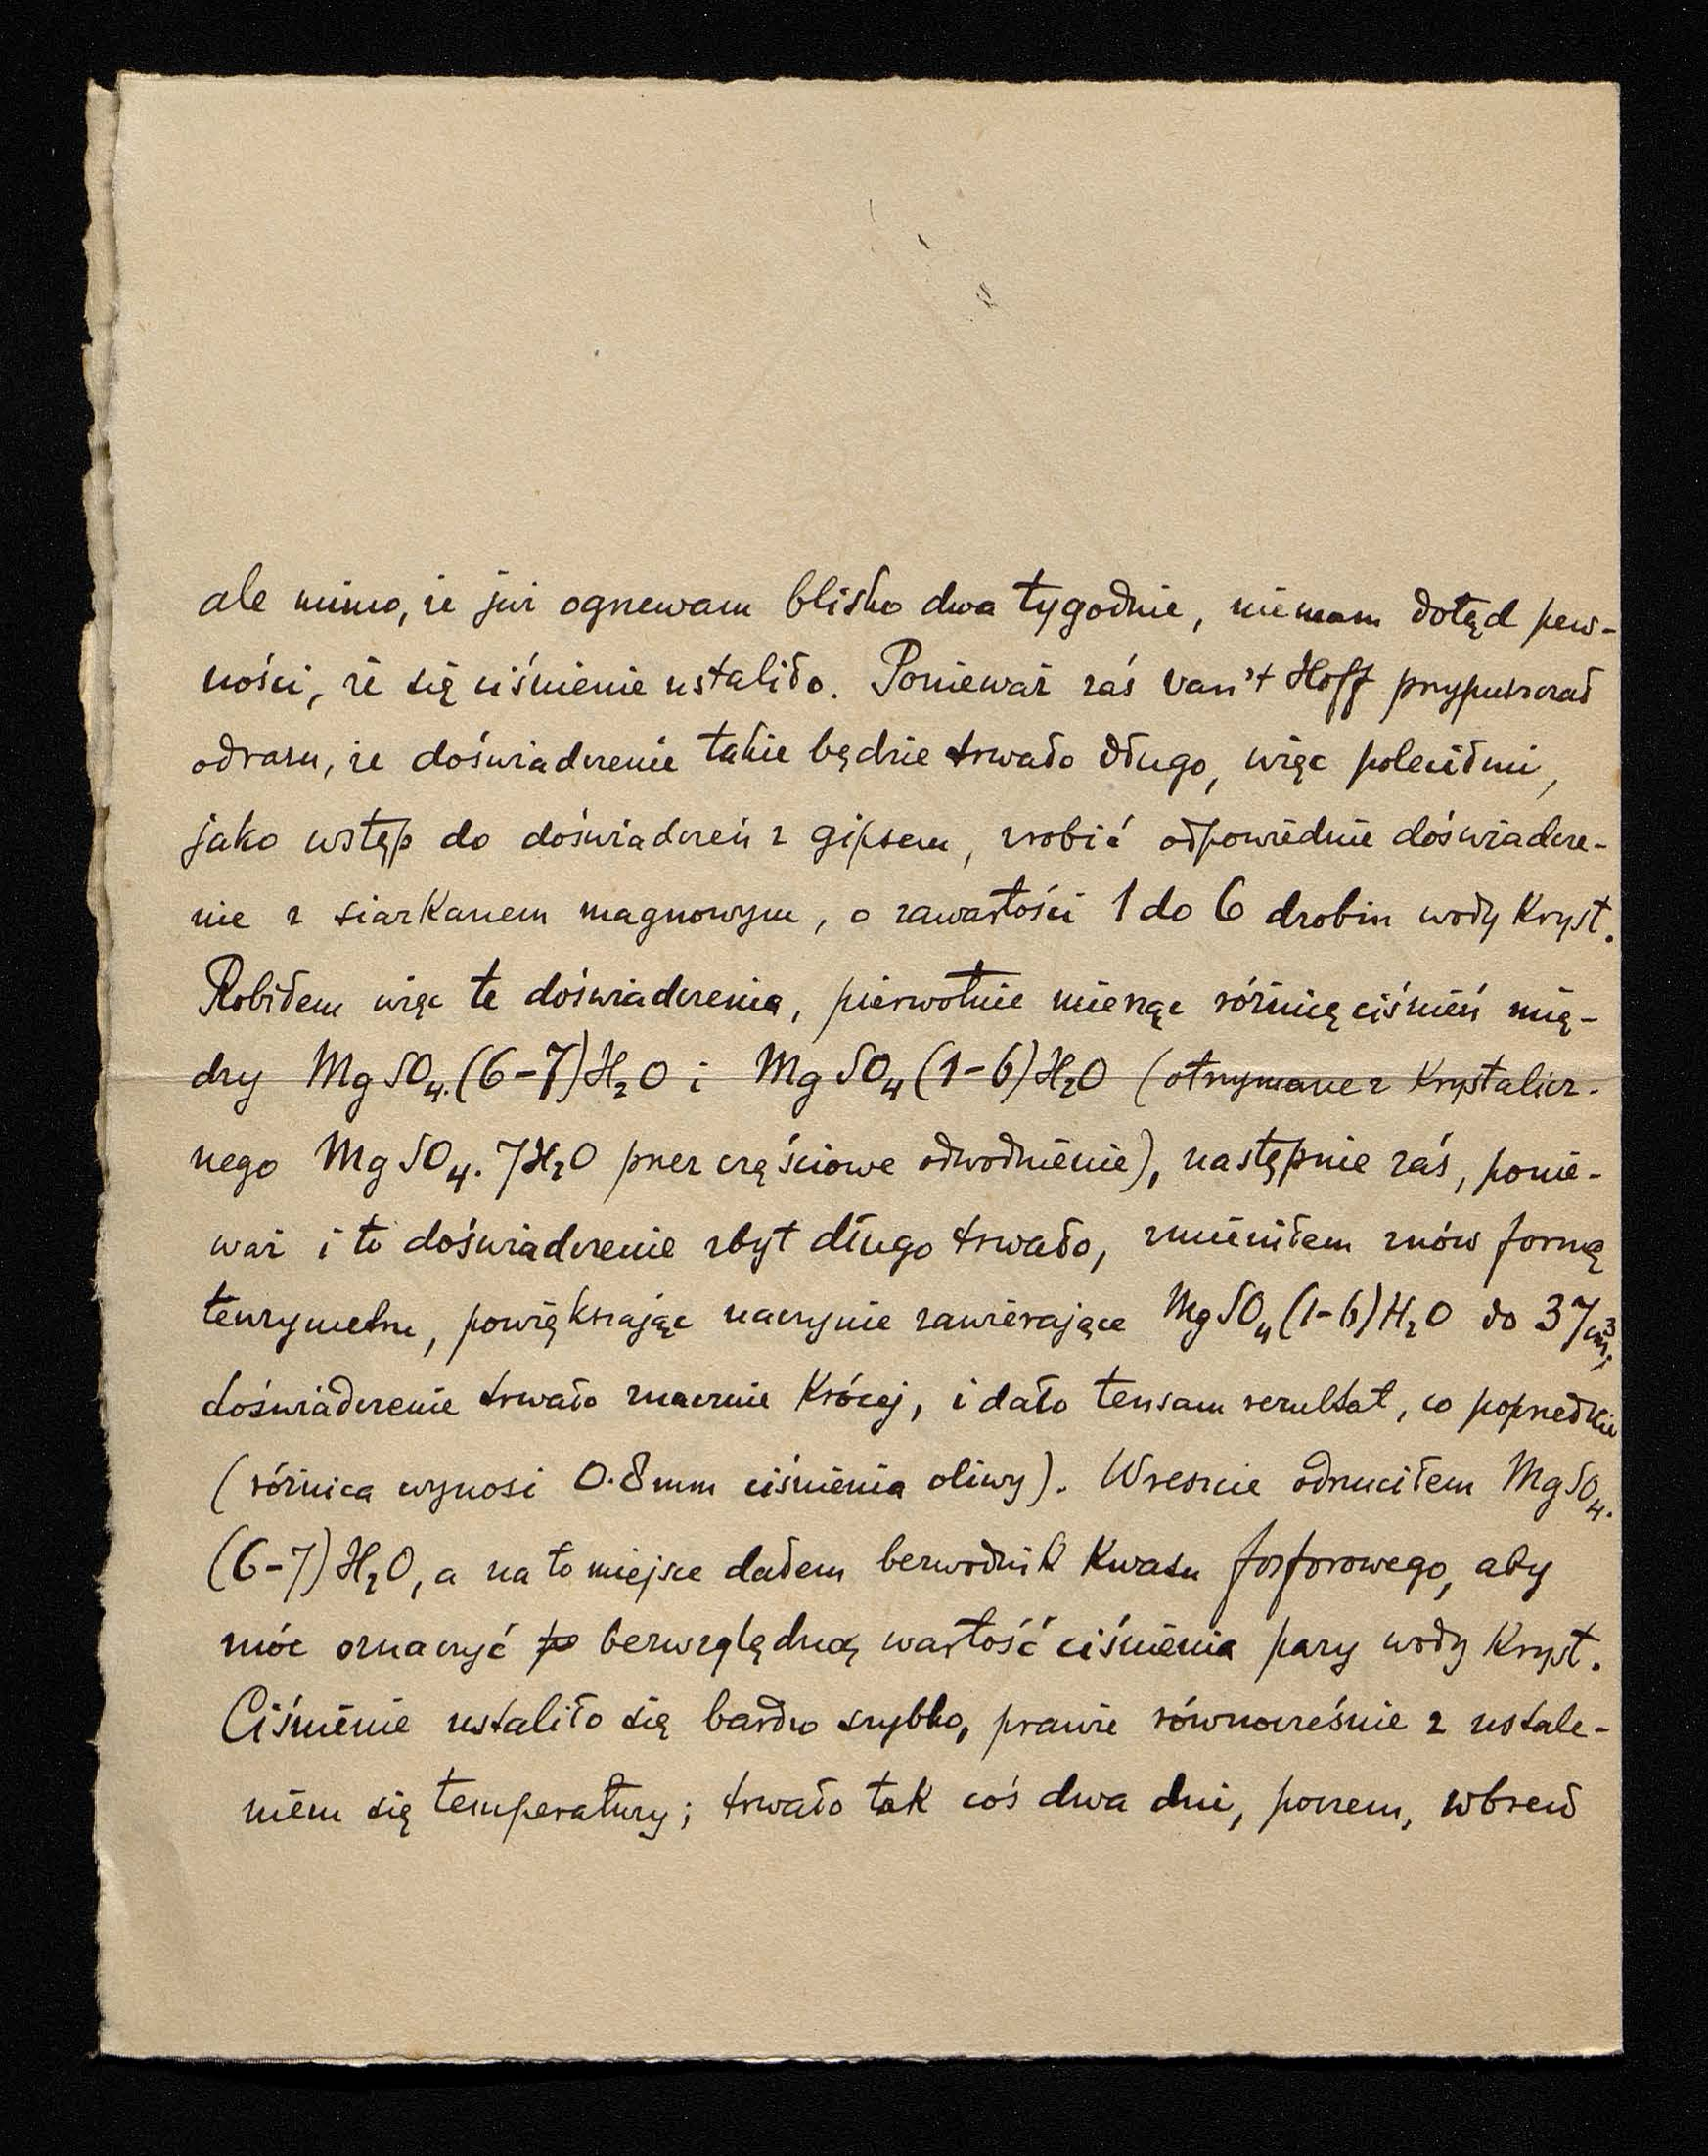 ale mimo, że już ogrzewam blisko dwa tygodnie, niemam dotąd pew-
ności, że się ciśnienie ustaliło. Ponieważ zaś van't Hoff przypuszczał
odrazu, że doświadczenie takie będzie trwało długo, więc polecił mi,
jako wstęp do doświadczeń z gipsem, zrobić odpowiednie doświadcze-
nie z siarkanem magnowym, o zawartości 1 do 6 drobin wody kryst.
Robiłem więc te doświadczenia, pierwotnie mierząc różnicę ciśnień mię-
dzy MgSO₄.(6-7)H₂O i MgSO₄(1-6)H₂O (otrzymane z krystalicz-
nego MgSO₄.7H₂O przez częściowe odwodnienie), następnie zaś, ponie-
waż i to doświadczenie zbyt długo trwało, zmieniłem znów formę
tenzymetru, powiększając naczynie zawierające MgSO₄(1-6)H₂O do 37cm³;
doświadczenie trwało znacznie krócej, i dało tensam rezultat, co poprzednie
(różnica wynosi 0.8mm ciśnienia oliwy). Wreszcie odrzuciłem MgSO₄.
(6-7)H₂O, a na to miejsce dałem bezwodnik kwasu fosforowego, aby
móc oznaczyć bezwzględną wartość ciśnienia pary wody kryst.
Ciśnienie ustaliło się bardzo szybko, prawie równocześnie z ustale-
niem się temperatury; trwało tak coś dwa dni, poczem, wbrew